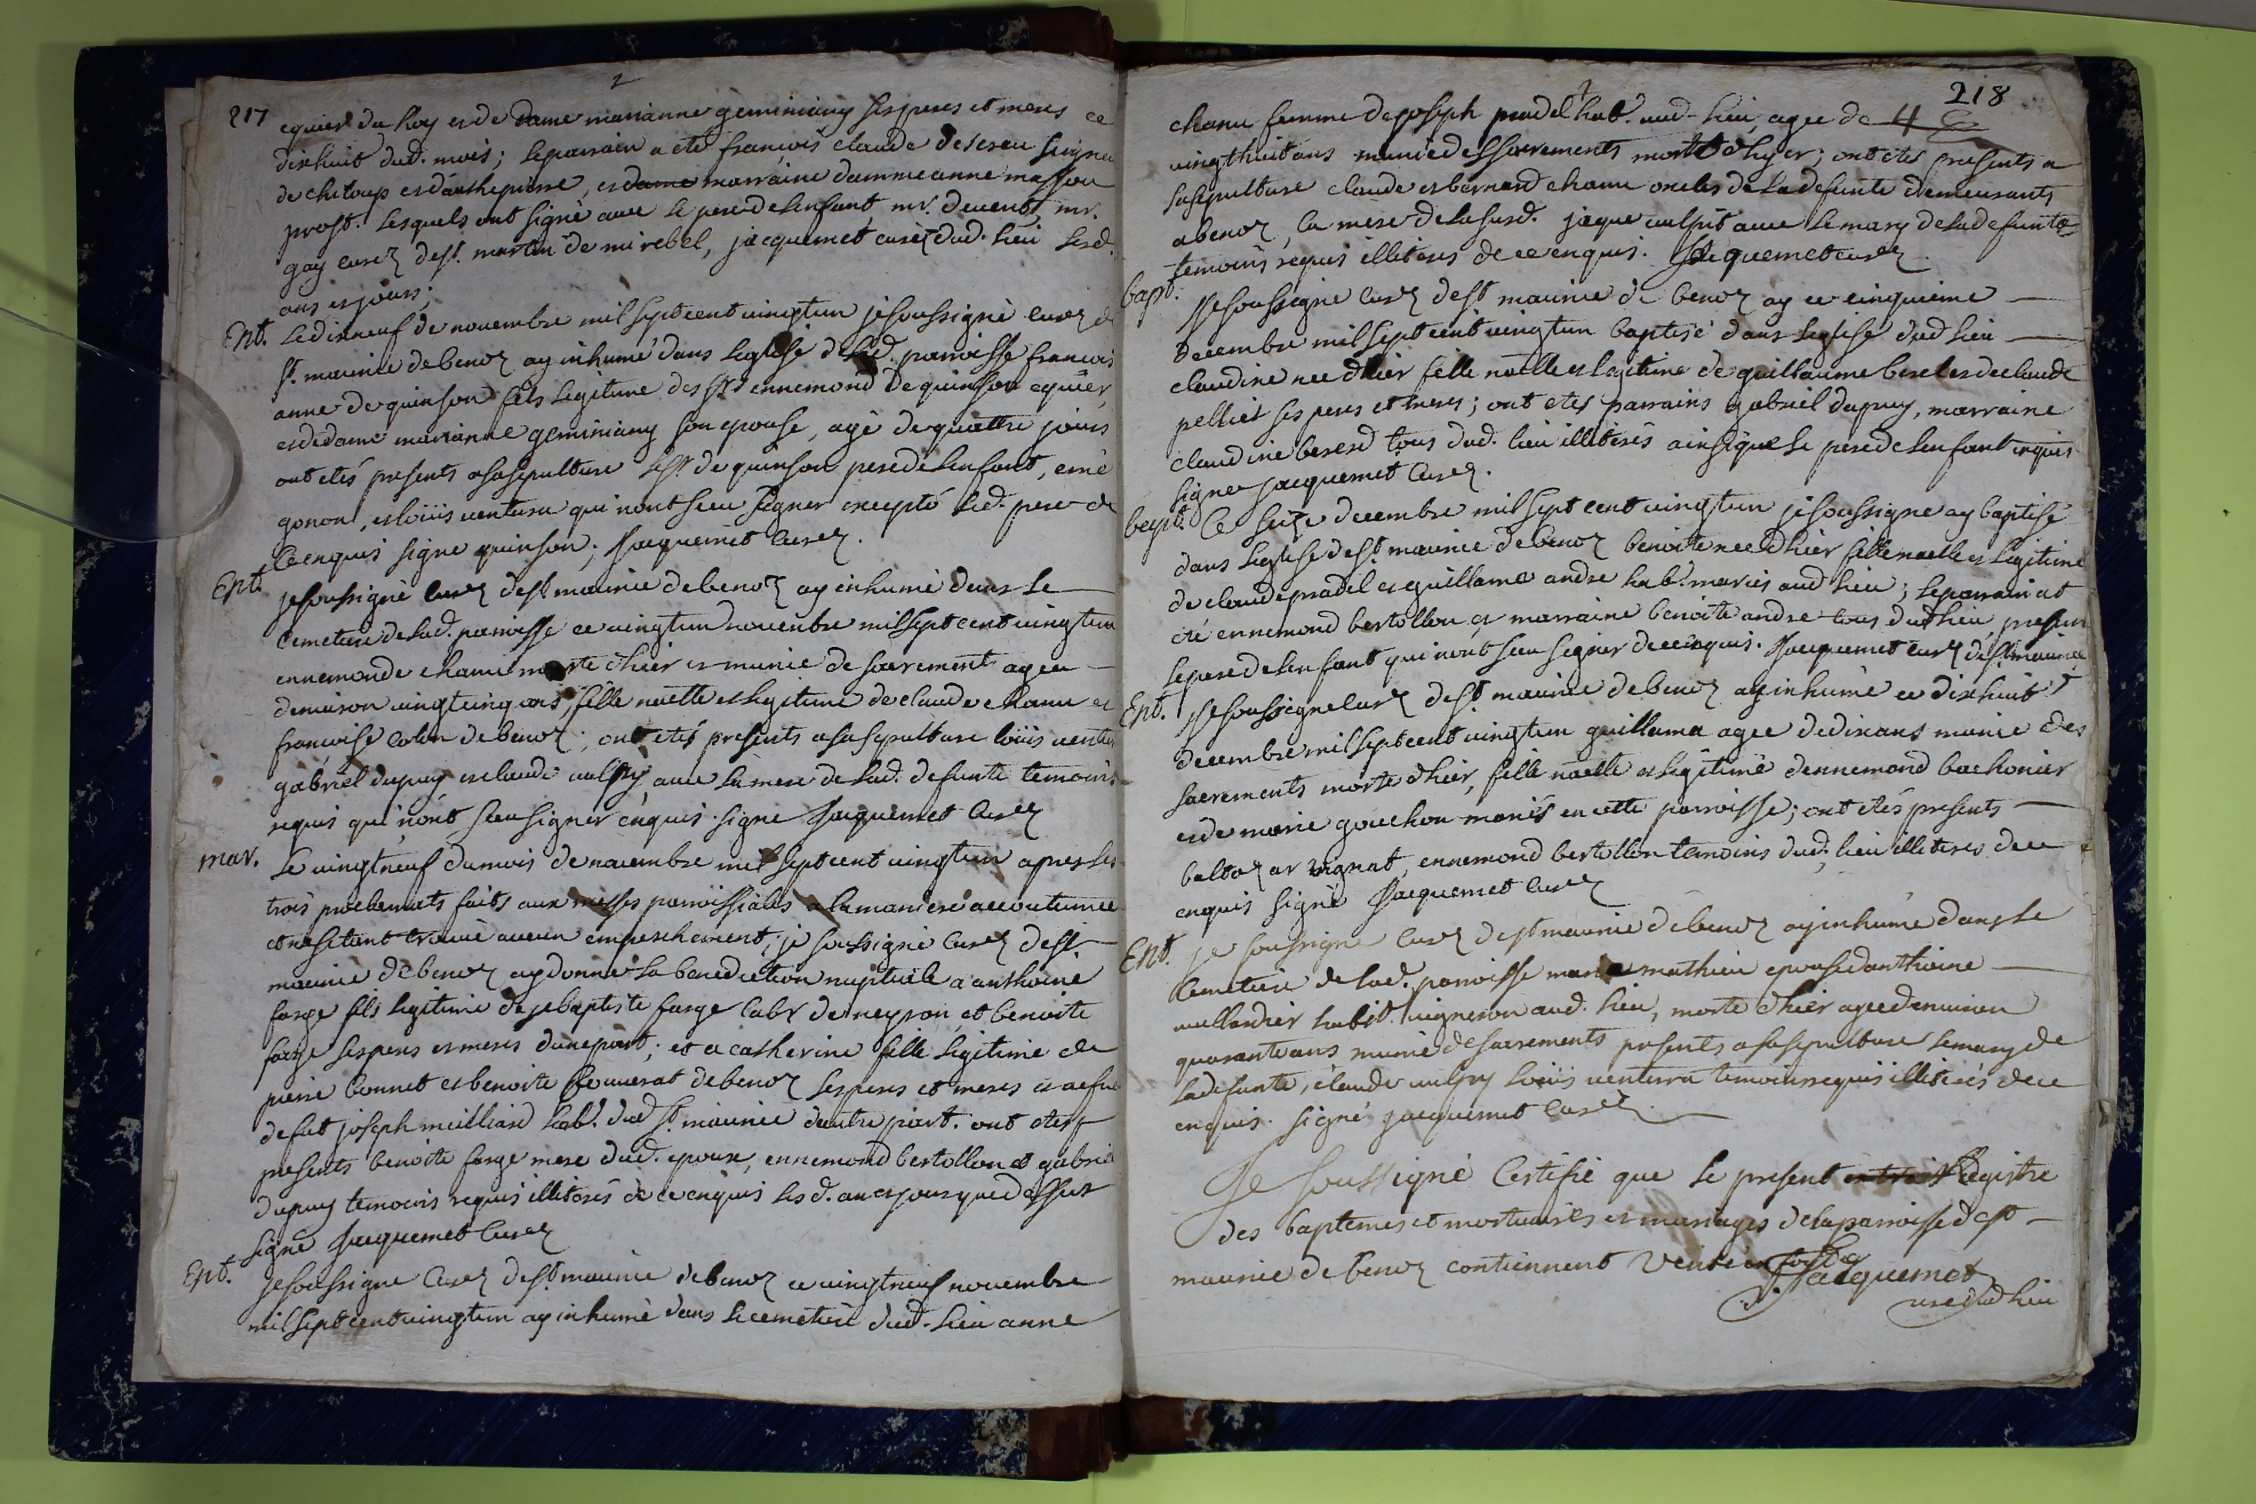 2
217
equier du Roy et de Dame marianne geminiany ses peres et meres ce
dixhuit dud. mois; le parrain a eté françois claude de seigneu
de cheloup et dame marraine damme anne masson
prost. lesquels ont signé avec le pere de lenfant, mr. mr.
gay curéz de st. martin de mirebel, jacquemet curéz dud. lieu lesd.
ans et jours;
Ent. Le dixneuf de novembre mil sept cent vingtun je soussigné curéz de
st. maurice de benoz ay inhumé dans leglise de lad. parroisse francois
anne de quinson fils legitime des srs ennemond de quinson equier,
et de dame marianne geminiany son epouse, agé de quattre jours
ont etés presents a sa sepulture le sr. de quinson pere de lenfant, emé
gonon, et loüis ventura qui nont sceu signer excepté led. pere de
ce enquis signe quinson; Jacquemet curéz.
Ent. je soussigné curéz de st maurice de benoz ay inhumé dans le
cemetiere de lad. parroisse ce vingtun novembre mil sept cent vingtun
ennemonde chanu morte dhier et munie de sacrement agee
denviron vingtcinq ans, fille naelle et legitime de claude chanu et
francoise colon de benoz; ont etés presents a sa sepulture loüis ventura
gabriel dupuy et claude vulpy avec la mere de lad. defunte temoins
requis qui nont sceu signer enquis. signe Jacquemet curéz
mar. Le vingtneuf du mois de novembre mil sept cent vingtun apres les
trois proclemats faits aux messes parroissiales a la maniere accoutumee
et ne sétant trouvé aucun empeschement, je soussigné curéz de st.
maurice de benoz ay donné la benediction nuptiale a anthoine
farge fils legitime de je baptiste farge labr de neyron, et benoite
farge ses peres et meres dune part; et a catherine fille legitime de
pierre bonnet et benoite de benoz ses peres et meres et
defut joseph meilliard hab. dud st. maurice dautre part. ont etes
presents benoite farge mere dud. epoux, ennemond bertollon et gabriel
dupuy temoins requis illiterés de ce enquis lesd. an et jour que dessus
signé Jacquemet curéz
Ent. Je soussigne curéz de st maurice de benoz ce vingtneuf novembre
mil sept cent vingtun ay inhumé dans le cemetiere dud. lieu anne
218
chanu femme de joseph pradel hab. aud. lieu, agee de
vingthuit ans munie des sacrements morte dhyer; ont etes presents a
sa sepulture claude et bernard chanu oncles de la defunte demeurants
a benoz, la mere de la susd. jaque vulpit avec le mary de la defunte
temoins requis illiterés de ce enquis. Jacquemet curéz
bapt. Je soussigné curéz de st maurice de benoz ay ce cinquieme
decembre mil sept cent vingtun baptisé dans leglise dud lieu
claudine nee dhier fille naelle et legitime de guillaume berel et de claude
pelliet ses peres et meres; ont etes parrains gabriel dupuy, marraine
claudine bererd tous dud. lieu illiterés ainsi que le pere de lenfant enquis
signe jacquemet curéz.
bapt. Ce seize decembre mil sept cent vingtun je soussigne ay baptisé
dans leglise de st maurice de benoz benoite nee dhier fille naelle et legitime
de claude pradel et guillama andre hab. mariés aud lieu; le parrain at
eté ennemond bertollon et marraine benoite andre tous dud lieu present
le pere de lenfant qui nont sceu signer de ce enquis. Jacquemet curéz de st maurice
Ent. Je soussigne curéz de st maurice de benoz ay inhumé ce dixhuit
decembre mil sept cent vingtun guillama agee de dix ans munie des
sacrements morte dhier, fille naelle et legitime dennemond bachonier
et de marie gouchon mariés en cette parroisse; ont etés presents
baltazar vignat, ennemond bertollon temoins dud. lieu illiteres de ce
enquis signé Jacquemet curéz
Ent. je soussigne curéz de st maurice de benoz ay inhumé dans le
cemetiere de lad. parroisse marie mathieu epouse danthoine
habit. vigneron aud. lieu, morte dhier agee denviron
quarante ans munie de sacrements presents a sa sepulture le mary de
la defunte, claude vulpy loüis ventura temoins requis illiterés de ce
enquis. signé jacquemet curéz.
Je soussigné Certifie que le present extrait Registre
des baptemes et mortuaires et mariages de la parroisse de st
maurice de benoz contiennent
Jacquemet
curé dud lieu